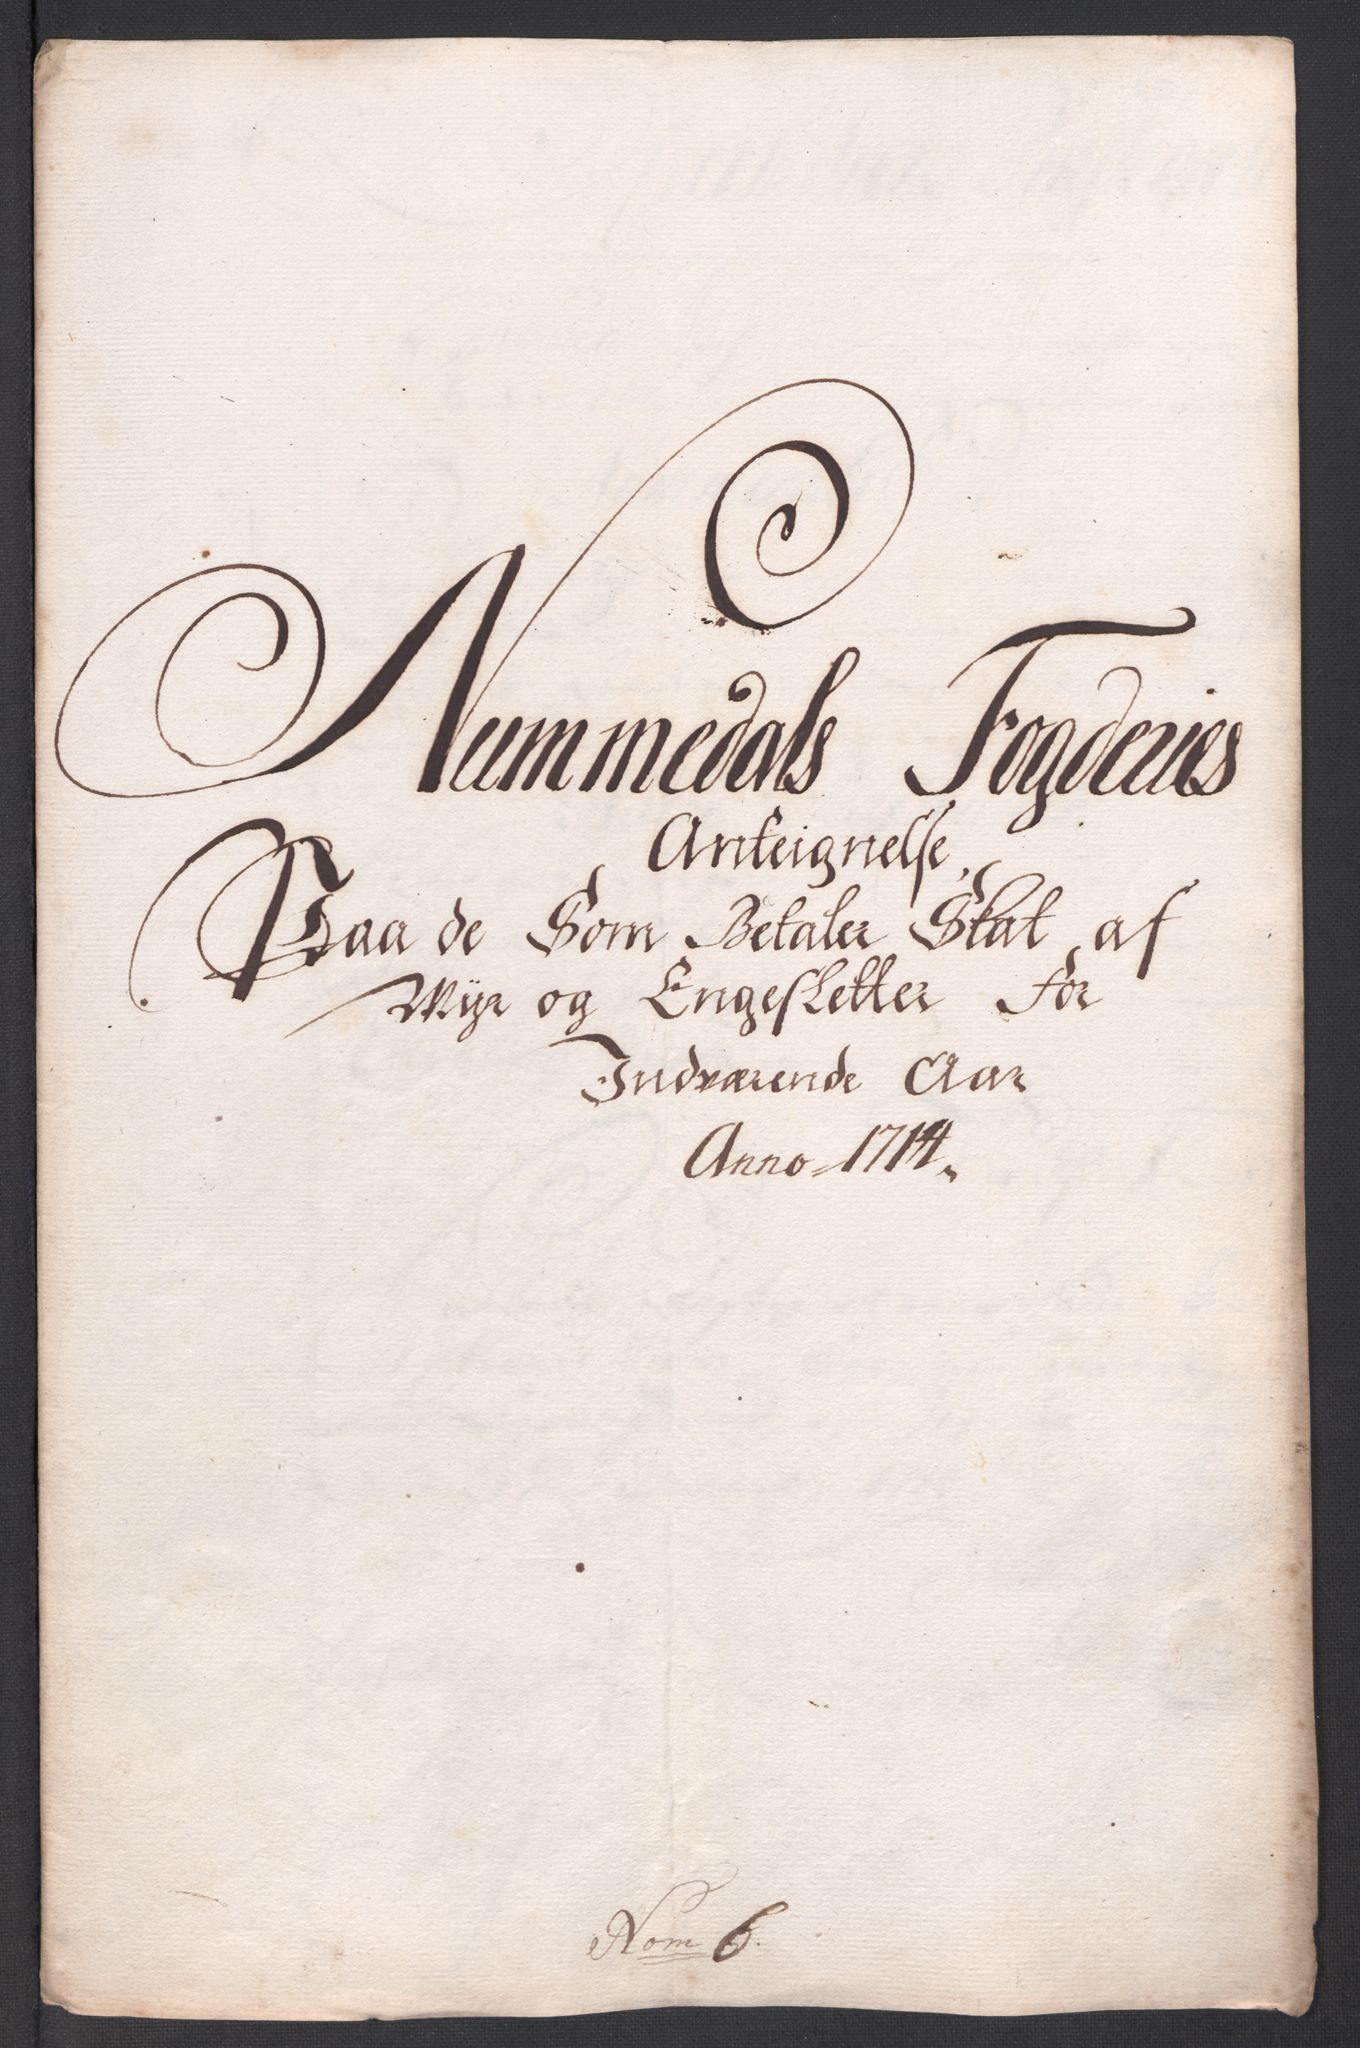 Nummedals Fogderies
Anteignelse,
Paa de Som Betaler Skat af
Myr og Engesletter For
Indværende Aar
Anno 1714.
Nom 6.